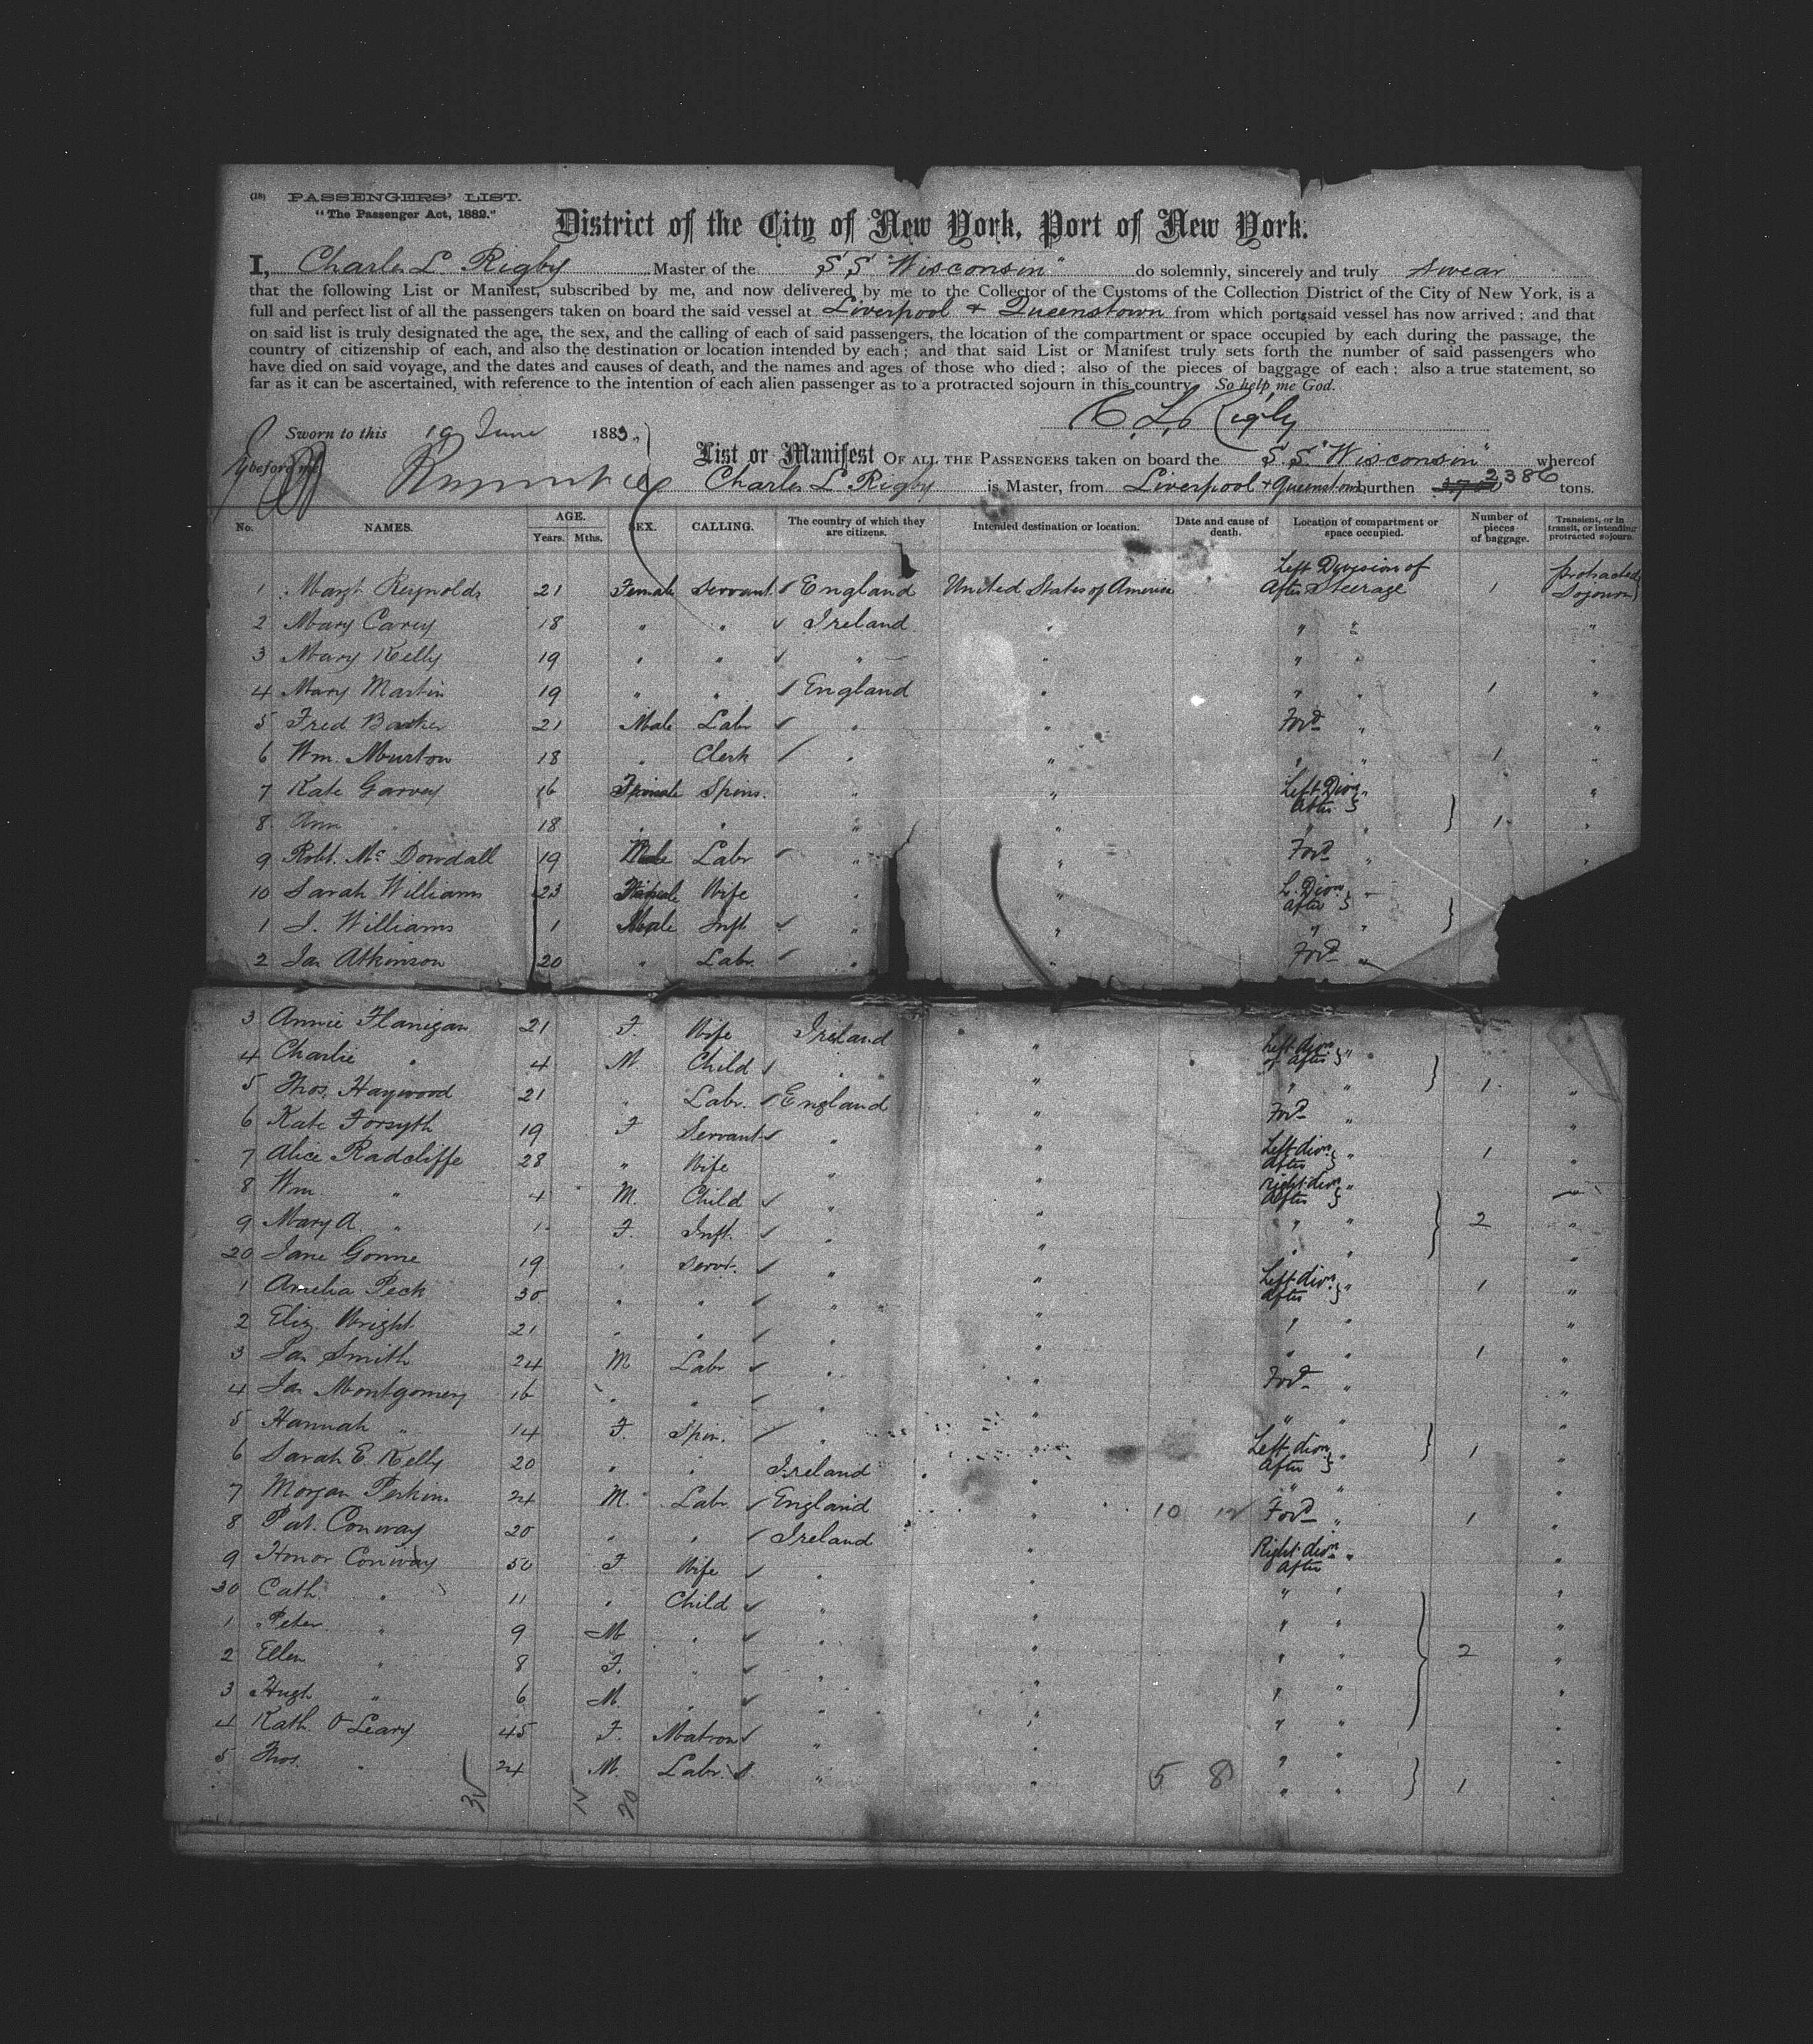 (18) PASSENGERS' LIST.
"The Passenger Act, 1882."
District of the City of New York, Port of New York.
I, Charles L. Rigby Master of the S S "Wisconsin" do solemnly, sincerely and truly swear
that the following List or Manifest, subscribed by me, and now delivered by me to the Collector of the Customs of the Collection District of the City of New York, is a
full and perfect list of all the passengers taken on board the said vessel at Liverpool & Queenstown from which ports said vessel has now arrived; and that
on said list is truly designated the age, the sex, and the calling of each of said passengers, the location of the compartment or space occupied by each during the passage, the
country of citizenship of each, and also the destination or location intended by each; and that said List or Manifest truly sets forth the number of said passengers who
have died on said voyage, and the dates and causes of death, and the names and ages of those who died; also of the pieces of baggage of each; also a true statement, so
far as it can be ascertained, with reference to the intention of each alien passenger as to a protracted sojourn in this country. So help me God.
C. L. Rigby
Sworn to this 19 June 1883,
before me
List or Manifest OF ALL THE PASSENGERS taken on board the S. S. "Wisconsin" whereof
Charles L Rigby is Master, from Liverpool & Queenstown burthen 2386 tons.
No. NAMES. AGE. Years. Mths. SEX. CALLING. The country of which they are citizens. Intended destination or location. Date and cause of death. Location of compartment or space occupied. Number of pieces of baggage. Transient, or in transit, or intending protracted sojourn.
1 Margt Reynolds 21 Female Servant England United States of America Left Division of After Steerage 1 protracted Sojourn
2 Mary Carey 18 " " Ireland " " " "
3 Mary Kelly 19 " " " " " " "
4 Mary Martin 19 " " England " " " 1 "
5 Fred Barker 21 Male Labr " " Ford " "
6 Wm. Murton 18 " Clerk " " " " 1 "
7 Kate Garvey 16 Female Spins. " " Left Divn After " "
8 Ann " 18 " " " " " " 1 "
9 Robt. Mc Dowdall 19 Male Labr " " Ford " "
10 Sarah Williams 23 Female Wife " " L. Divn After "
1 J. Williams 1 Male Inft " " " "
2 Jas Atkinson 20 " Labr " " Ford "
3 Annie Flanigan 21 F. Wife Ireland " Left divn of After "
4 Charlie " 4 M Child " " " " 1 "
5 Thos. Haywood 21 " Labr. England " Ford " "
6 Kate Forsyth 19 F Servant " " Left divn After " 1 "
7 Alice Radcliffe 28 " Wife " " Right divn After "
8 Wm. " 4 M. Child " " " " 2 "
9 Mary A. " 1 F. Inft. " " " " "
20 Jane Gorine 19 " Servt. " " Left divn After " 1 "
1 Amelia Peck 30 " " " " " " "
2 Eliz. Wright 21 " " " " " " 1 "
3 Jas Smith 24 M Labr " " Ford " "
4 Jas Montgomery 16 " " " " " "
5 Hannah " 14 F. Spin. " " Left divn After " 1 "
6 Sarah E. Kelly 20 " " Ireland " " " "
7 Morgan Perkins 24 M. Labr England " 10 12 Ford " 1 "
8 Pat. Conway 20 " " Ireland " Right divn After " "
9 Honor Conway 50 F Wife " " " " "
30 Cath. " 11 " Child " " " " "
1 Peter " 9 M " " " " " 2 "
2 Ellen " 8 F. " " " " " "
3 Hugh " 6 M. " " " " " "
4 Kath. O'Leary 45 F. Matron " " " " "
5 Thos. " 24 M. Labr. " " 5 8 " " 1